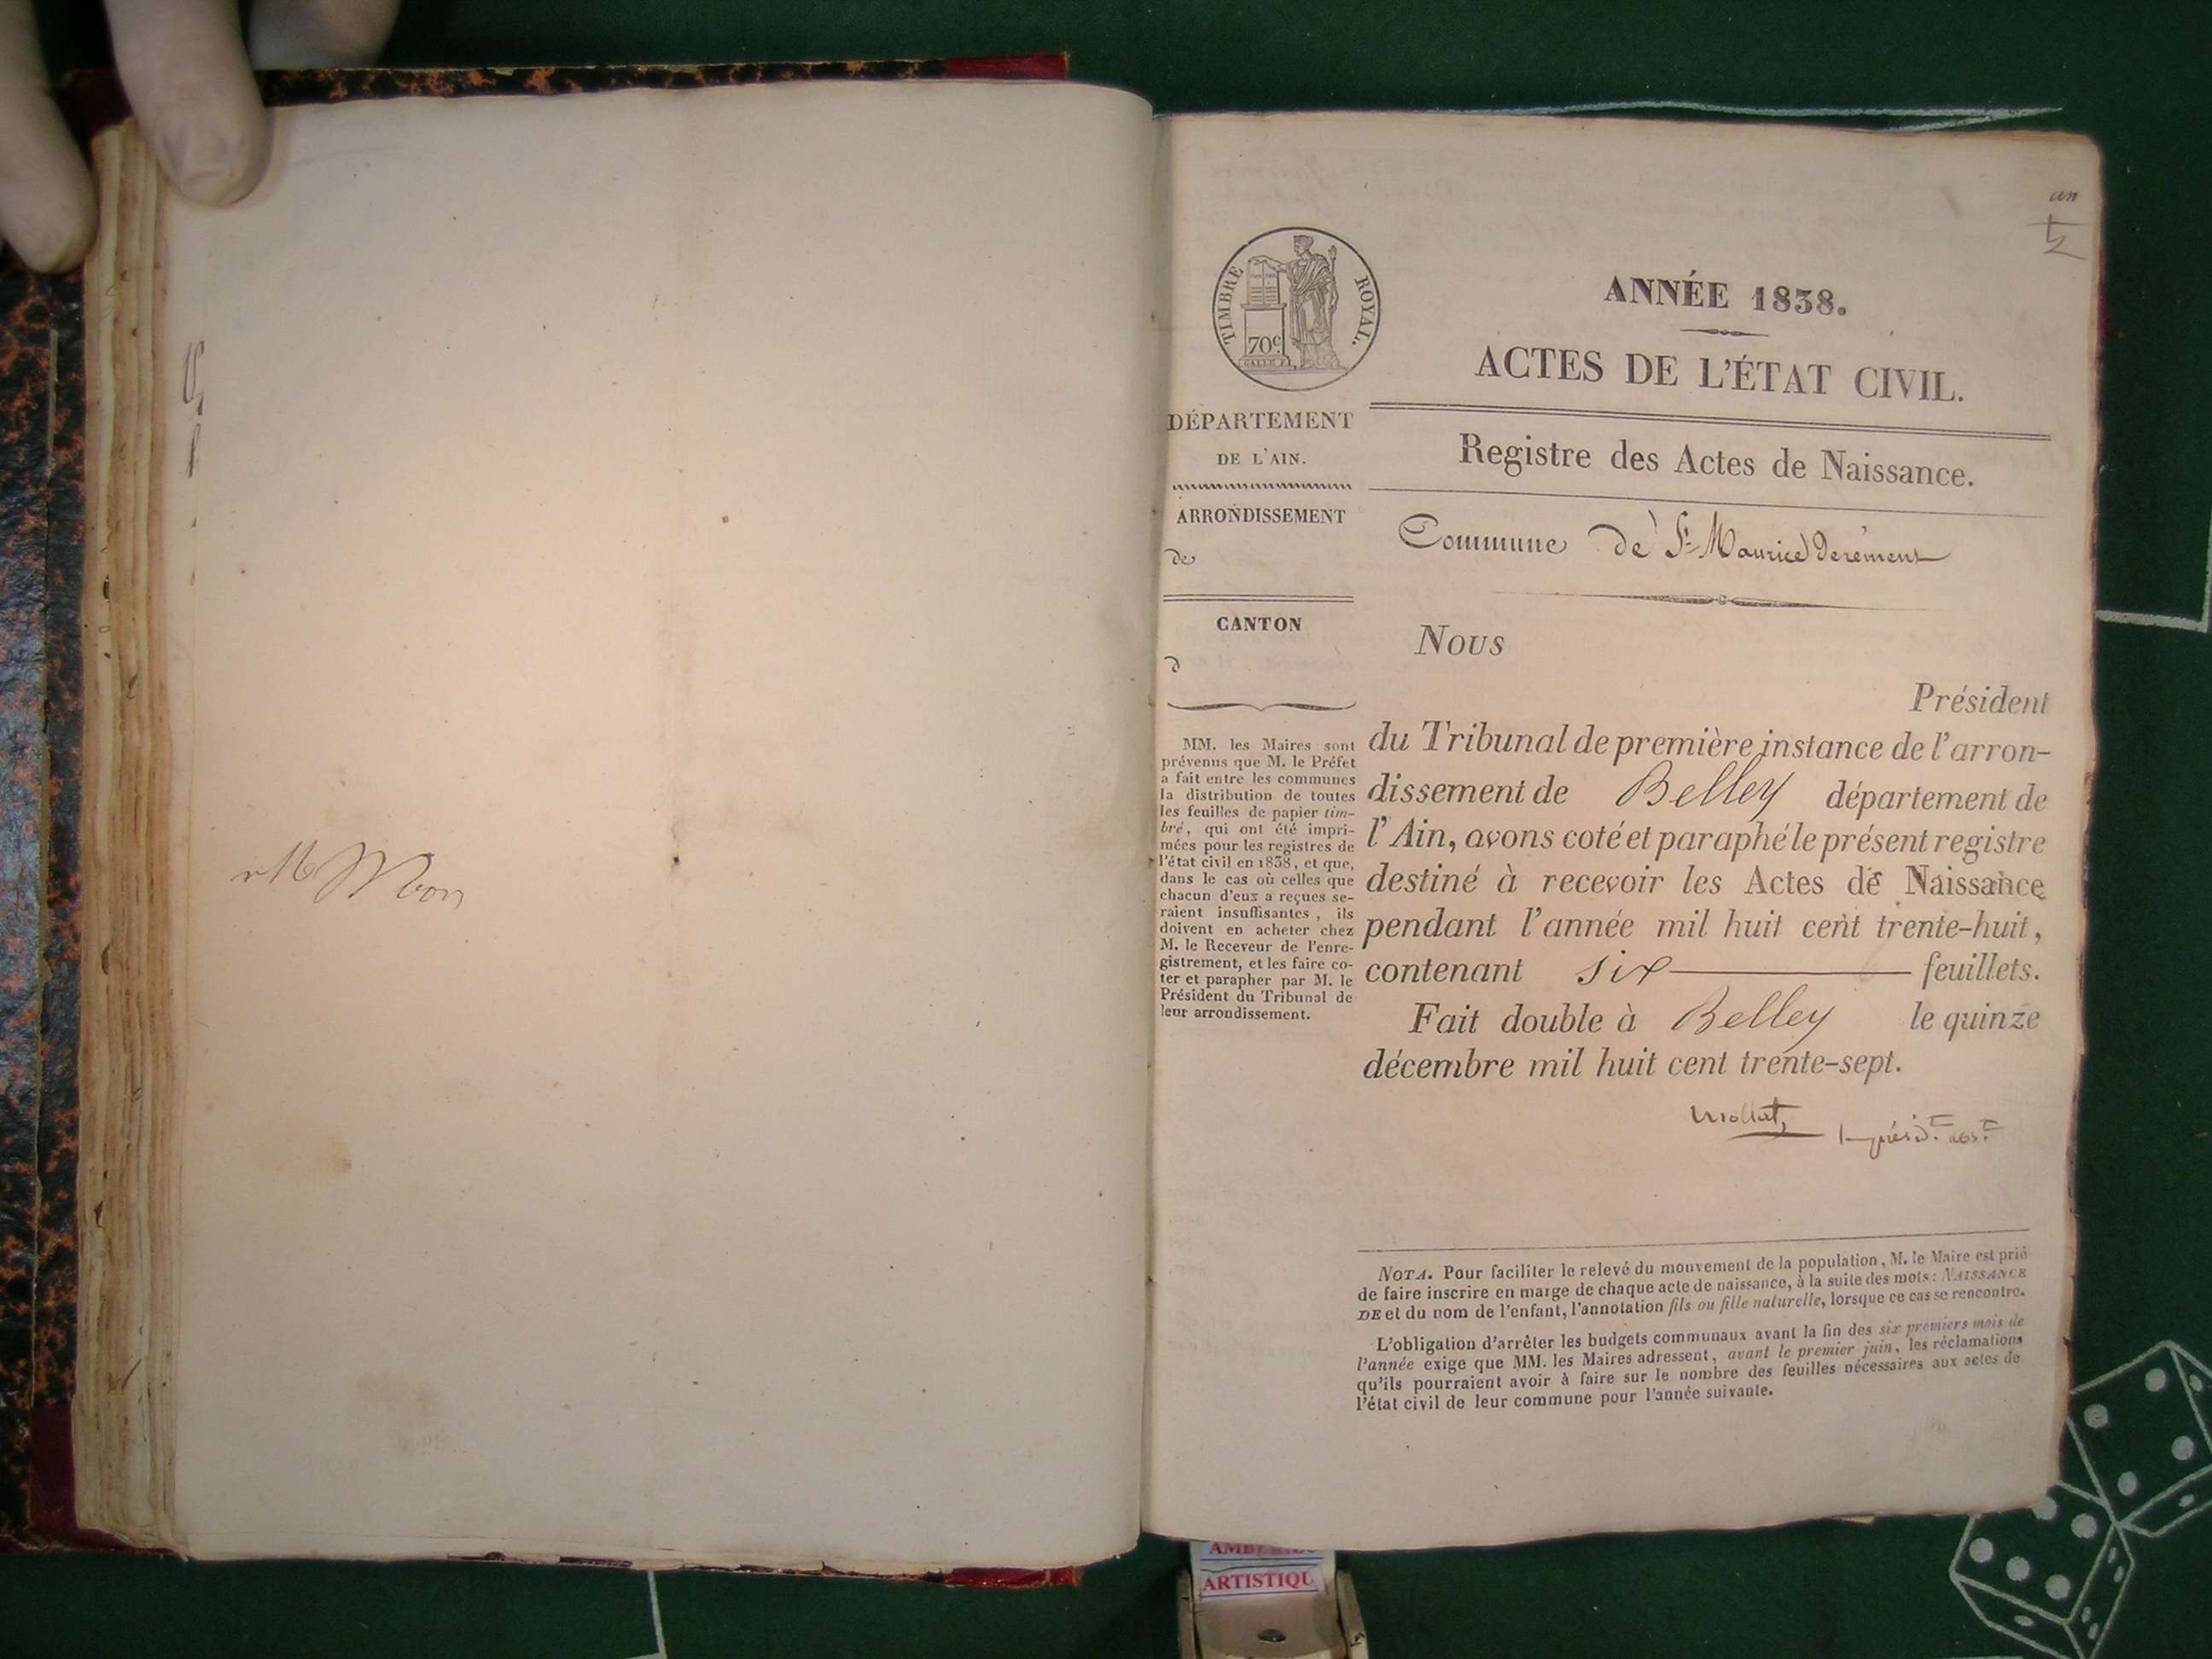 un
TIMBRE ROYAL.
70c.
ANNÉE 1838.
ACTES DE L'ÉTAT CIVIL.
DÉPARTEMENT
DE L'AIN.
ARRONDISSEMENT
de
CANTON
d
MM. les Maires sont
prévenus que M. le Préfet
a fait entre les communes
la distribution de toutes
les feuilles de papier tim-
bré, qui ont été impri-
mées pour les registres de
l'état civil en 1838, et que,
dans le cas où celles que
chacun d'eux a reçues se-
raient insuffisantes, ils
doivent en acheter chez
M. le Receveur de l'enre-
gistrement, et les faire co-
ter et parapher par M. le
Président du Tribunal de
leur arrondissement.
Registre des Actes de Naissance.
Commune de St Maurice de rément
Nous
Président
du Tribunal de première instance de l'arron-
dissement de Belley département de
l'Ain, avons coté et paraphé le présent registre
destiné à recevoir les Actes de Naissance
pendant l'année mil huit cent trente-huit,
contenant six feuillets.
Fait double à Belley le quinze
décembre mil huit cent trente-sept.
NOTA. Pour faciliter le relevé du mouvement de la population, M. le Maire est prié
de faire inscrire en marge de chaque acte de naissance, à la suite des mots : NAISSANCE
DE et du nom de l'enfant, l'annotation fils ou fille naturelle, lorsque ce cas se rencontre.
L'obligation d'arrêter les budgets communaux avant la fin des six premiers mois de
l'année exige que MM. les Maires adressent, avant le premier juin, les réclamations
qu'ils pourraient avoir à faire sur le nombre des feuilles nécessaires aux actes de
l'état civil de leur commune pour l'année suivante.
ARTISTIQU